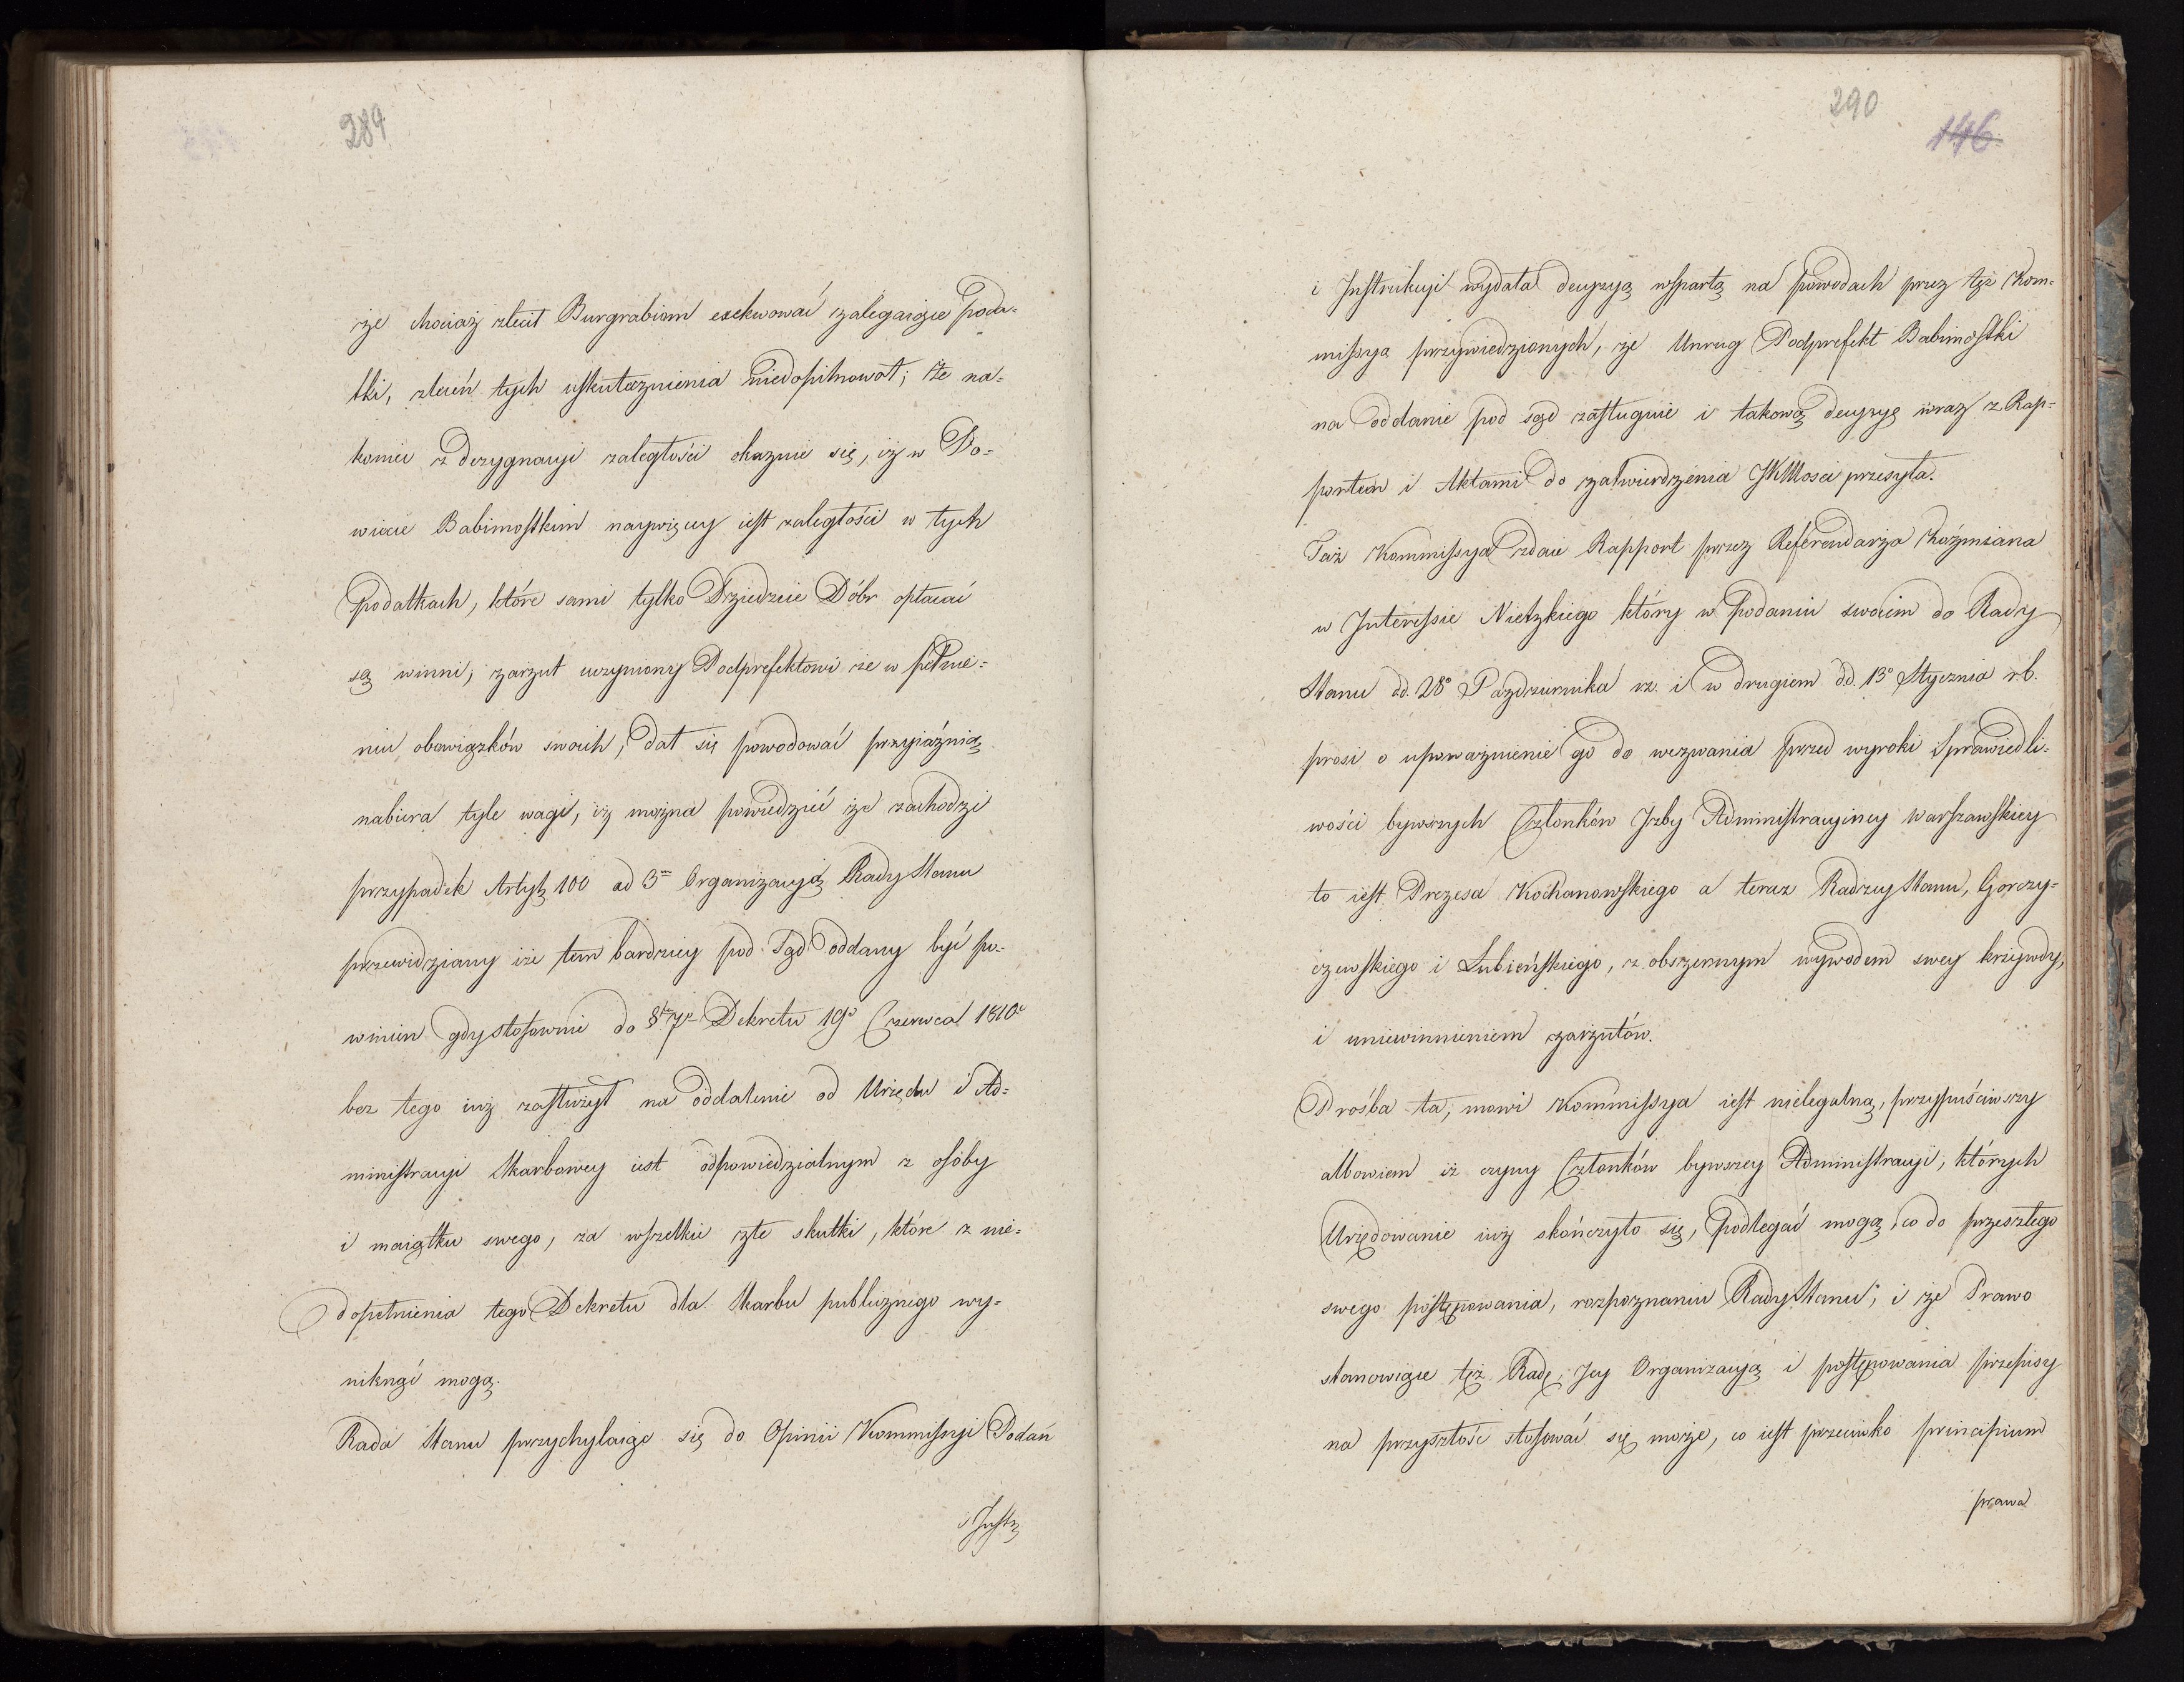 289
że chociaż zlecił Burgrabiom exekwować zalegaiące Poda-
tki, zleceń tych uskutecznienia niedopilnował; że na-
koniec z dezygnacyi zaległości okazuie się, iż w Po-
wiecie Babimostkim naywięcey iest zaległości w tych
Podatkach, które sami tylko Dziedzice Dóbr opłacać
są winni; zarzut uczyniony Podprefektowi że w pełnie-
niu obowiązków swoich, dał się powodować przyiaźnią
nabiera tyle wagi, iż można powiedzieć że zachodzi
przypadek Artyk 100 ad 3m Organizacyą Rady Stanu
przewidziany i że tem bardziey pod Sąd oddany być po-
winien gdy stosownie do § 7o Dekretu 19o Czerwca 1810o
bez tego iuż zasłużył na oddalenie od Urzędu i Ad-
ministracyi Skarbowey iest odpowiedzialnym z osoby
i maiątku swego, za wszelkie złe skutki, które z nie-
dopełnienia tego Dekretu dla Skarbu publicznego wy-
niknąć mogą.
Rada Stanu przychylaiąc się do Opinii Kommissyi Podań
i Instr
290
146
i Instrukcyi wydała decyzyą wspartą na powodach przez tęż Kom-
missyą przywiedzionych, że Unrug Podprefekt Babimostki
na oddanie pod sąd zasługuie i takową decyzyę wraz z Rap-
portem i Aktami do zatwierdzenia JKMosci przesyła.
Taż Kommissya zdaie Rapport przez Referendarza Koźmiana
w Interessie Nietzkiego który w Podaniu swoim do Rady
Stanu dd. 28o Pazdziernika rz. i w drugiem dd. 13o Stycznia r.b.
prosi o upoważnienie go do wezwania przed wyroki Sprawiedli-
wości bywszych Członków Izby Administracyiney Warszawskiey
to iest Prezesa Kochanowskiego a teraz Radzcy Stanu, Gorczy-
czewskiego i Lubieńskiego, z obszernym wywodem swey krzywdy,
i uniewinnieniem zarzutów.
Prośba ta, mowi Kommissya iest nielegalną, przypuściwszy
albowiem iż czyny Członków bywszey Administracyi, których
Urzędowanie iuż skończyło się, Podlegać mogą, co do przeszłego
swego postępowania, rozpoznaniu Rady Stanu; i że Prawo
stanowiące też Radę, Jey Organizacyą i postępowania przepisy
na przyszłość stosować się może, co iest przeciwko principium
prawa